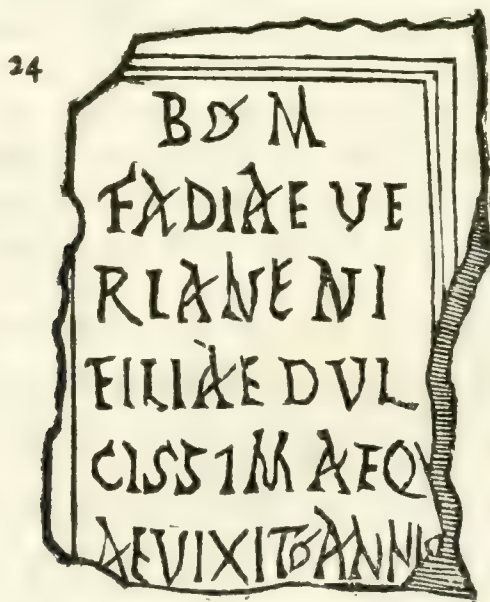 24
B D M
FADIAE VE
RIANE NI
FILIAE DVL
CISSIM AEQ
AEVIXIT ANNI